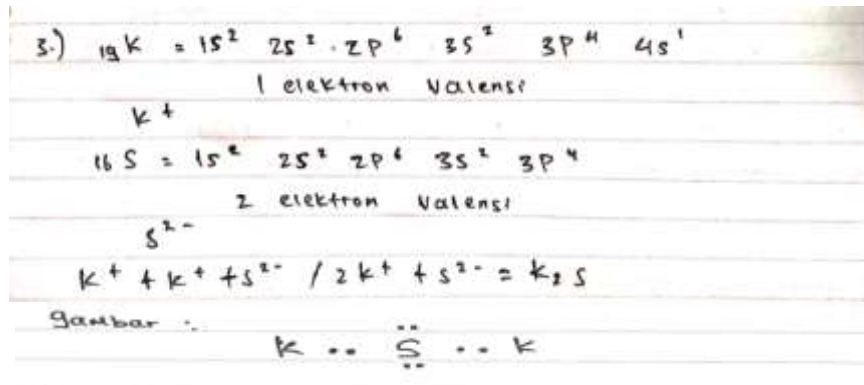 3.) 19 K = 1s² 2s² . 2p⁶ 3s² 3p⁴ 4s¹
1 elektron valensi
K⁺
16 S = 1s² 2s² 2p⁶ 3s² 3p⁴
2 elektron valensi
S²⁻
K⁺ + K⁺ + S²⁻ / 2K⁺ + S²⁻ = K₂S
gambar :
K .. S .. K